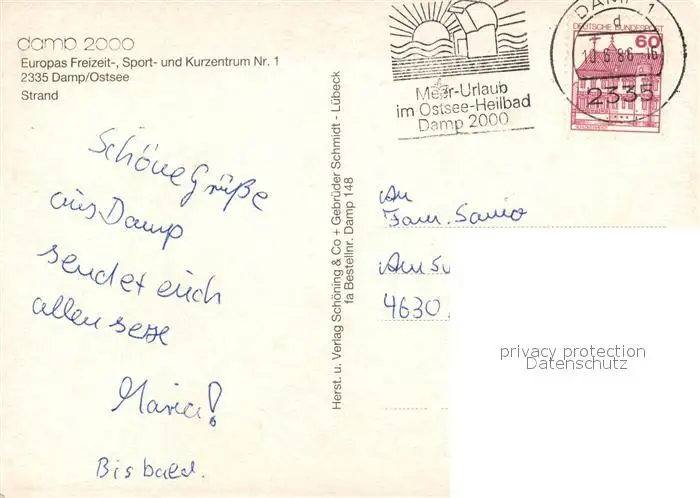 damp 2000
Europas Freizeit-, Sport- und Kurzentrum Nr. 1
2335 Damp/Ostsee
Strand
Schöne Grüße
aus Damp
sendet euch
allen
Maria!
Bis bald.
Herst. u. Verlag Schöning & Co + Gebrüder Schmidt - Lübeck
fa Bestellnr. Damp 148
Meer-Urlaub
im Ostsee-Heilbad
Damp 2000
DAMP 1
d
10.6.86.-16
2335
DEUTSCHE BUNDESPOST
60
An
Fam.
Am
4630
privacy protection
Datenschutz